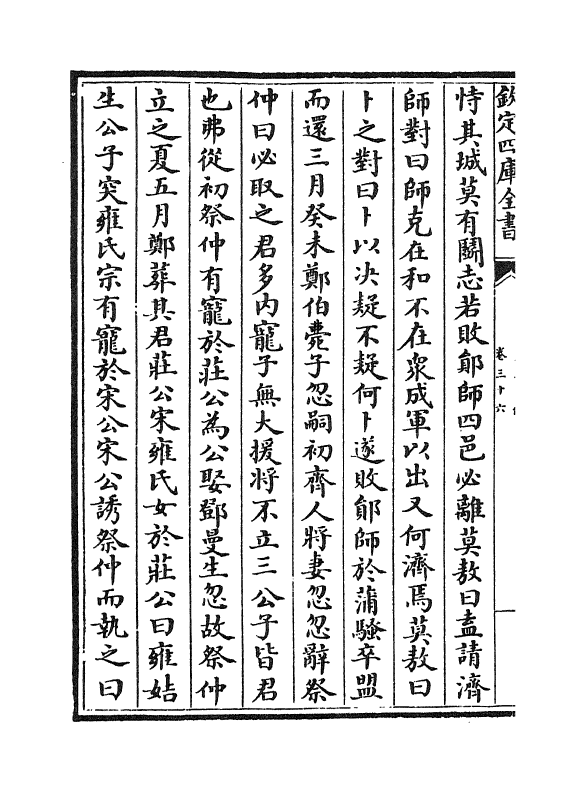 欽定四庫全書
卷三十六
恃其城莫有鬭志若敗鄖師四邑必離莫敖曰盍請濟
師對曰師克在和不在衆成軍以出又何濟焉莫敖曰
卜之對曰卜以决疑不疑何卜遂敗鄖師於蒲騷卒盟
而還三月癸未鄭伯薨子忽嗣初齊人將妻忽忽辭祭
仲曰必取之君多内寵子無大援將不立三公子皆君
也弗從初祭仲有寵於莊公為公娶鄧曼生忽故祭仲
立之夏五月鄭葬其君莊公宋雍氏女於莊公曰雍姞
生公子突雍氏宗有寵於宋公宋公誘祭仲而執之曰